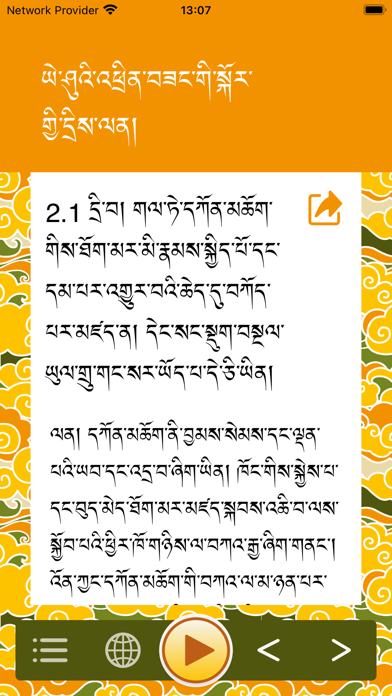 Network Provider 13:07
ཡེ་ཤུའི་འཕྲིན་བཟང་གི་སྐོར་
གྱི་དྲིས་ལན།
2.1 དྲི་བ། གལ་ཏེ་དཀོན་མཆོག་
གིས་ཐོག་མར་མི་རྣམས་སྐྱིད་པོ་དང་
དམ་པར་འགྱུར་བའི་ཆེད་དུ་བཀོད་
པར་མཛད་ན། དེང་སང་སྡུག་བསྔལ་
ཡུལ་གྲུ་གང་སར་ཡོད་པ་དེ་ཅི་ཡིན།
ལན། དཀོན་མཆོག་ནི་བྱམས་སེམས་དང་ལྡན་
པའི་ཡབ་དང་འདྲ་བ་ཞིག་ཡིན། ཁོང་གིས་སྐྱེས་པ་
དང་བུད་མེད་ཐོག་མར་མཛད་སྐབས་འཆི་བ་ལས་
སྐྱོབ་པའི་ཕྱིར་ཁོ་གཉིས་ལ་བཀའ་རྒྱ་ཞིག་གནང་།
འོན་ཀྱང་དཀོན་མཆོག་གི་བཀའ་ལ་མ་ཉན་པར་